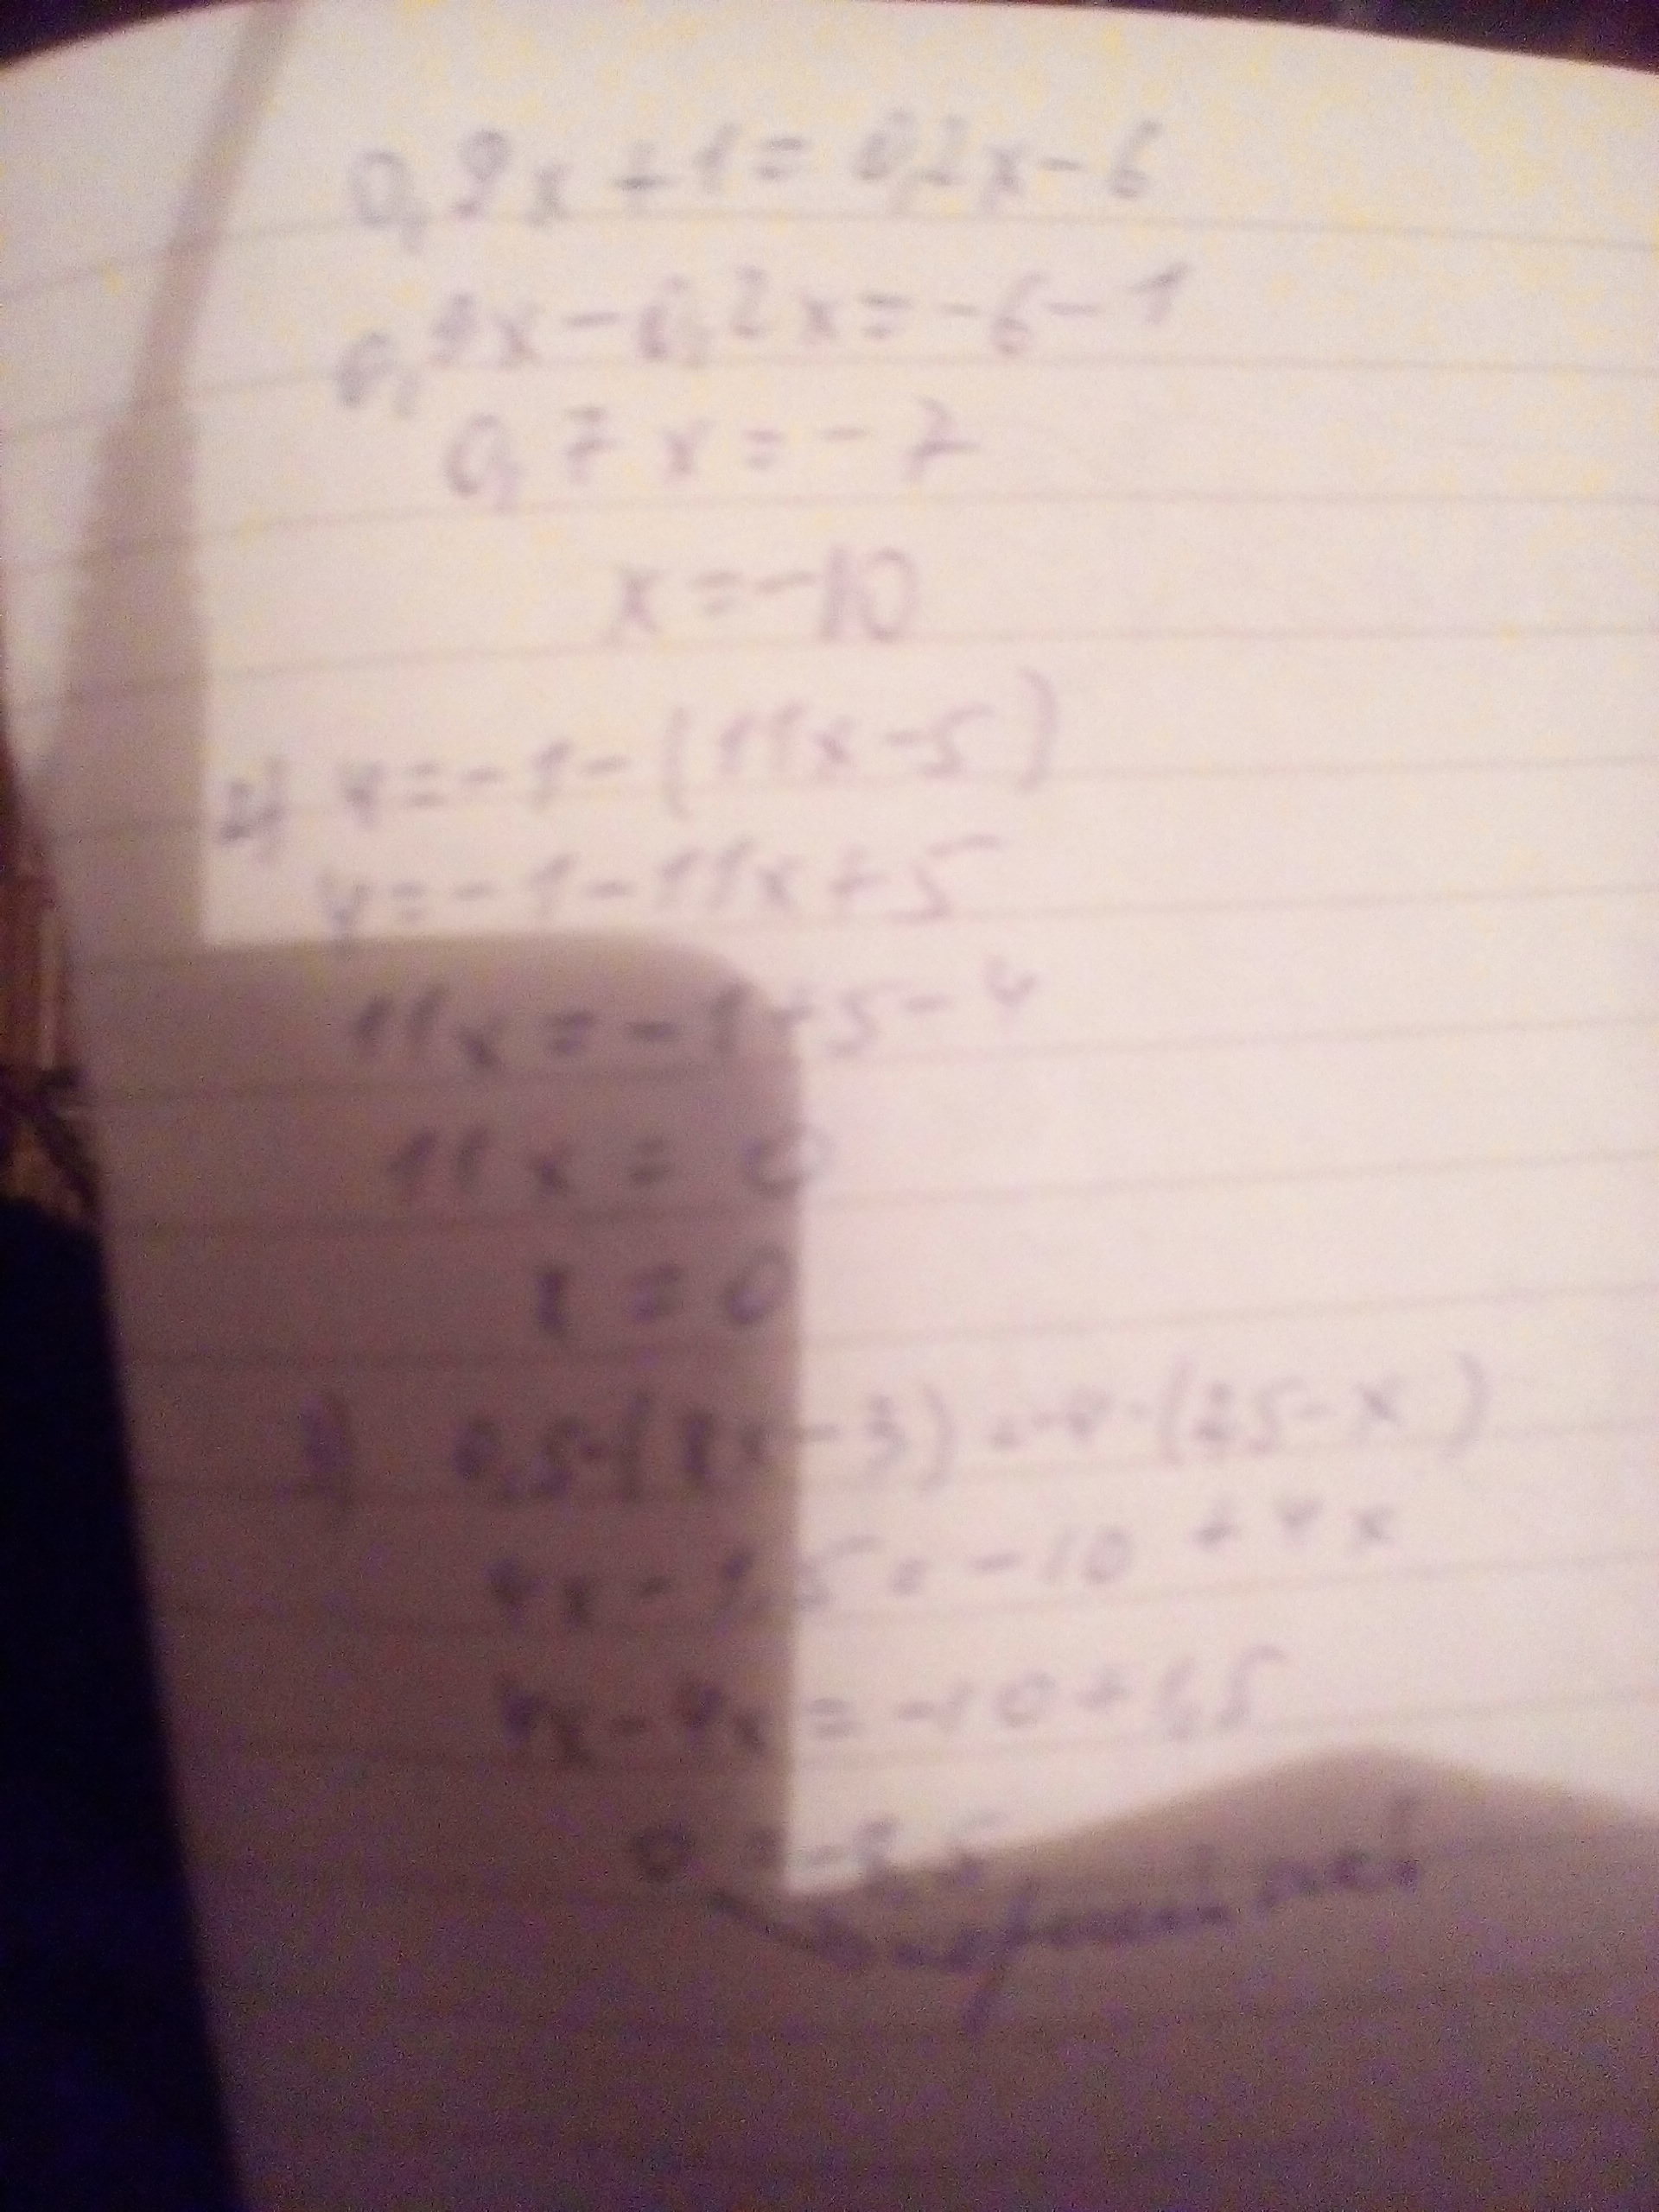 0,9x+1=0,2x-6
0,9x-0,2x=-6-1
0,7x=-7
x=-10
2) 4=-1-(11x-5)
4=-1-11x+5
11x=-1+5-4
11x=0
x=0
0,5·(8x-3)=-4·(2,5-x)
4x-1,5=-10+4x
4x-4x=-10+1,5
0=-8,5